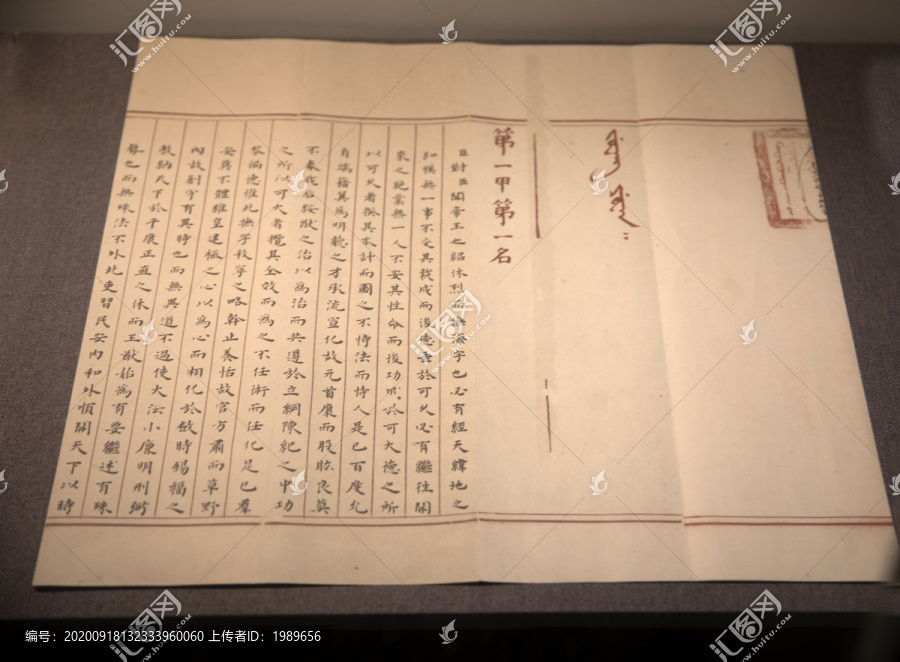 第一甲第一名
臣對臣聞帝王之紹休烈而撫海宇也必有經天緯地之
模無一事不受其裁成而後德垂於可久必有繼往開
來之業無一人不安其性命而後功成於可大德之所
以可久者探其本計而圖之不恃法而恃人是已百度允
貞端藉為明聽之才承流宣化故元首康而股肱良莫
不奉我后猷之治以為治而共遵於立綱陳紀之中功
之所以可大者攬其全效而為之不任術而任化是已羣
黎滿惟此撫字敉寧之略幹止養恬故官方肅而草野
安莫不體維皇建極之心以為心而相化於斂時錫福之
內故創守有異時也而無異道不過使大法小廉明刑弼
教納天下於平康正直之休而王猷始為有要繼述有殊
勢也而無殊法不外此吏習民安內和外順開天下以時
编号：20200918132333960060 上传者ID：1989656
汇图网
www.huitu.com